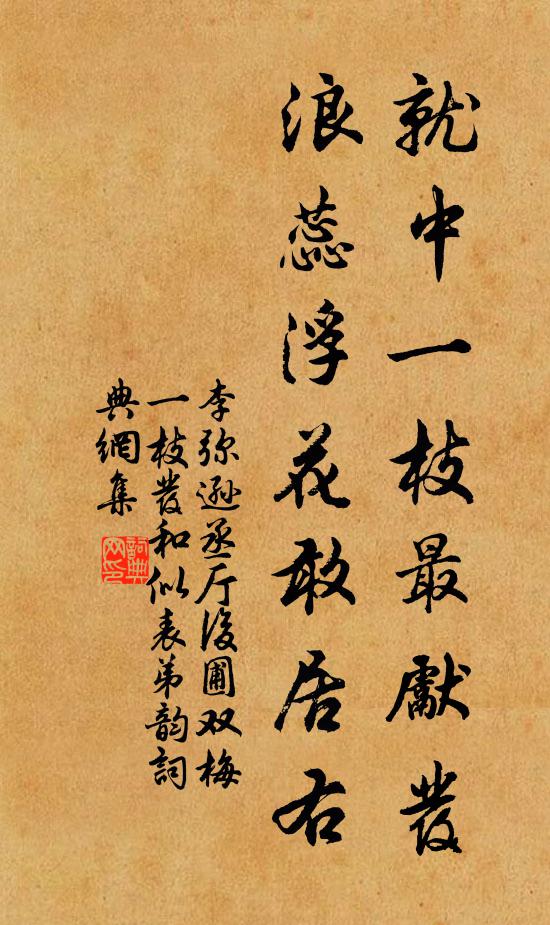 就中一枝最獻發
浪蕊浮花敢居右
李弥遜丞厅後圃双梅
一枝發和似表弟韵詞
典網集
詞典
网印